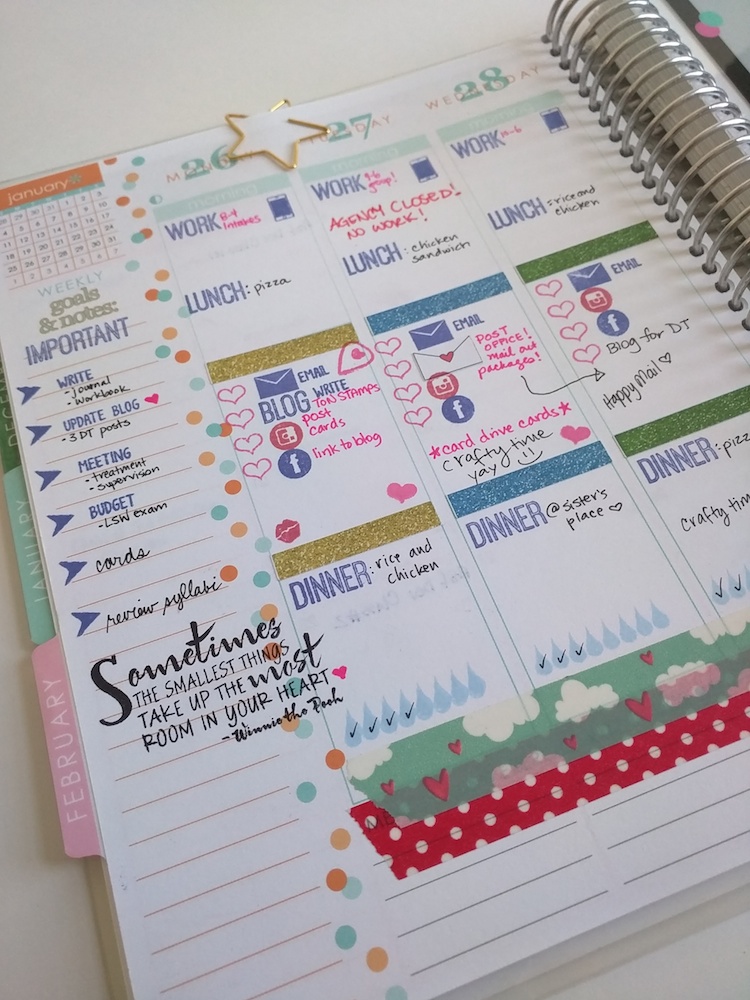 january
WEEKLY
goals
& notes:
IMPORTANT
WRITE
- journal
- workbook
UPDATE BLOG
- 3 DT posts
MEETING
- treatment
- supervision
BUDGET
- LSW exam
cards
review syllabi
Sometimes
THE SMALLEST THINGS
TAKE UP THE most
ROOM IN YOUR HEART
- Winnie the Pooh
26
MONDAY
morning
WORK 8-4
intakes
LUNCH: pizza
EMAIL
BLOG WRITE
TON STAMPS
post
cards
link to blog
DINNER: rice and
chicken
27
TUESDAY
morning
WORK 9-6
group!
AGENCY CLOSED!
NO WORK!
LUNCH: chicken
sandwich
EMAIL
POST
OFFICE!
mail out
packages!
*card drive cards*
crafty time
yay
DINNER @ sister's
place
28
WEDNESDAY
morning
WORK 10-6
LUNCH = rice and
chicken
EMAIL
Blog for DT
Happy Mail
DINNER: pizz
crafty tim
JANUARY
FEBRUARY